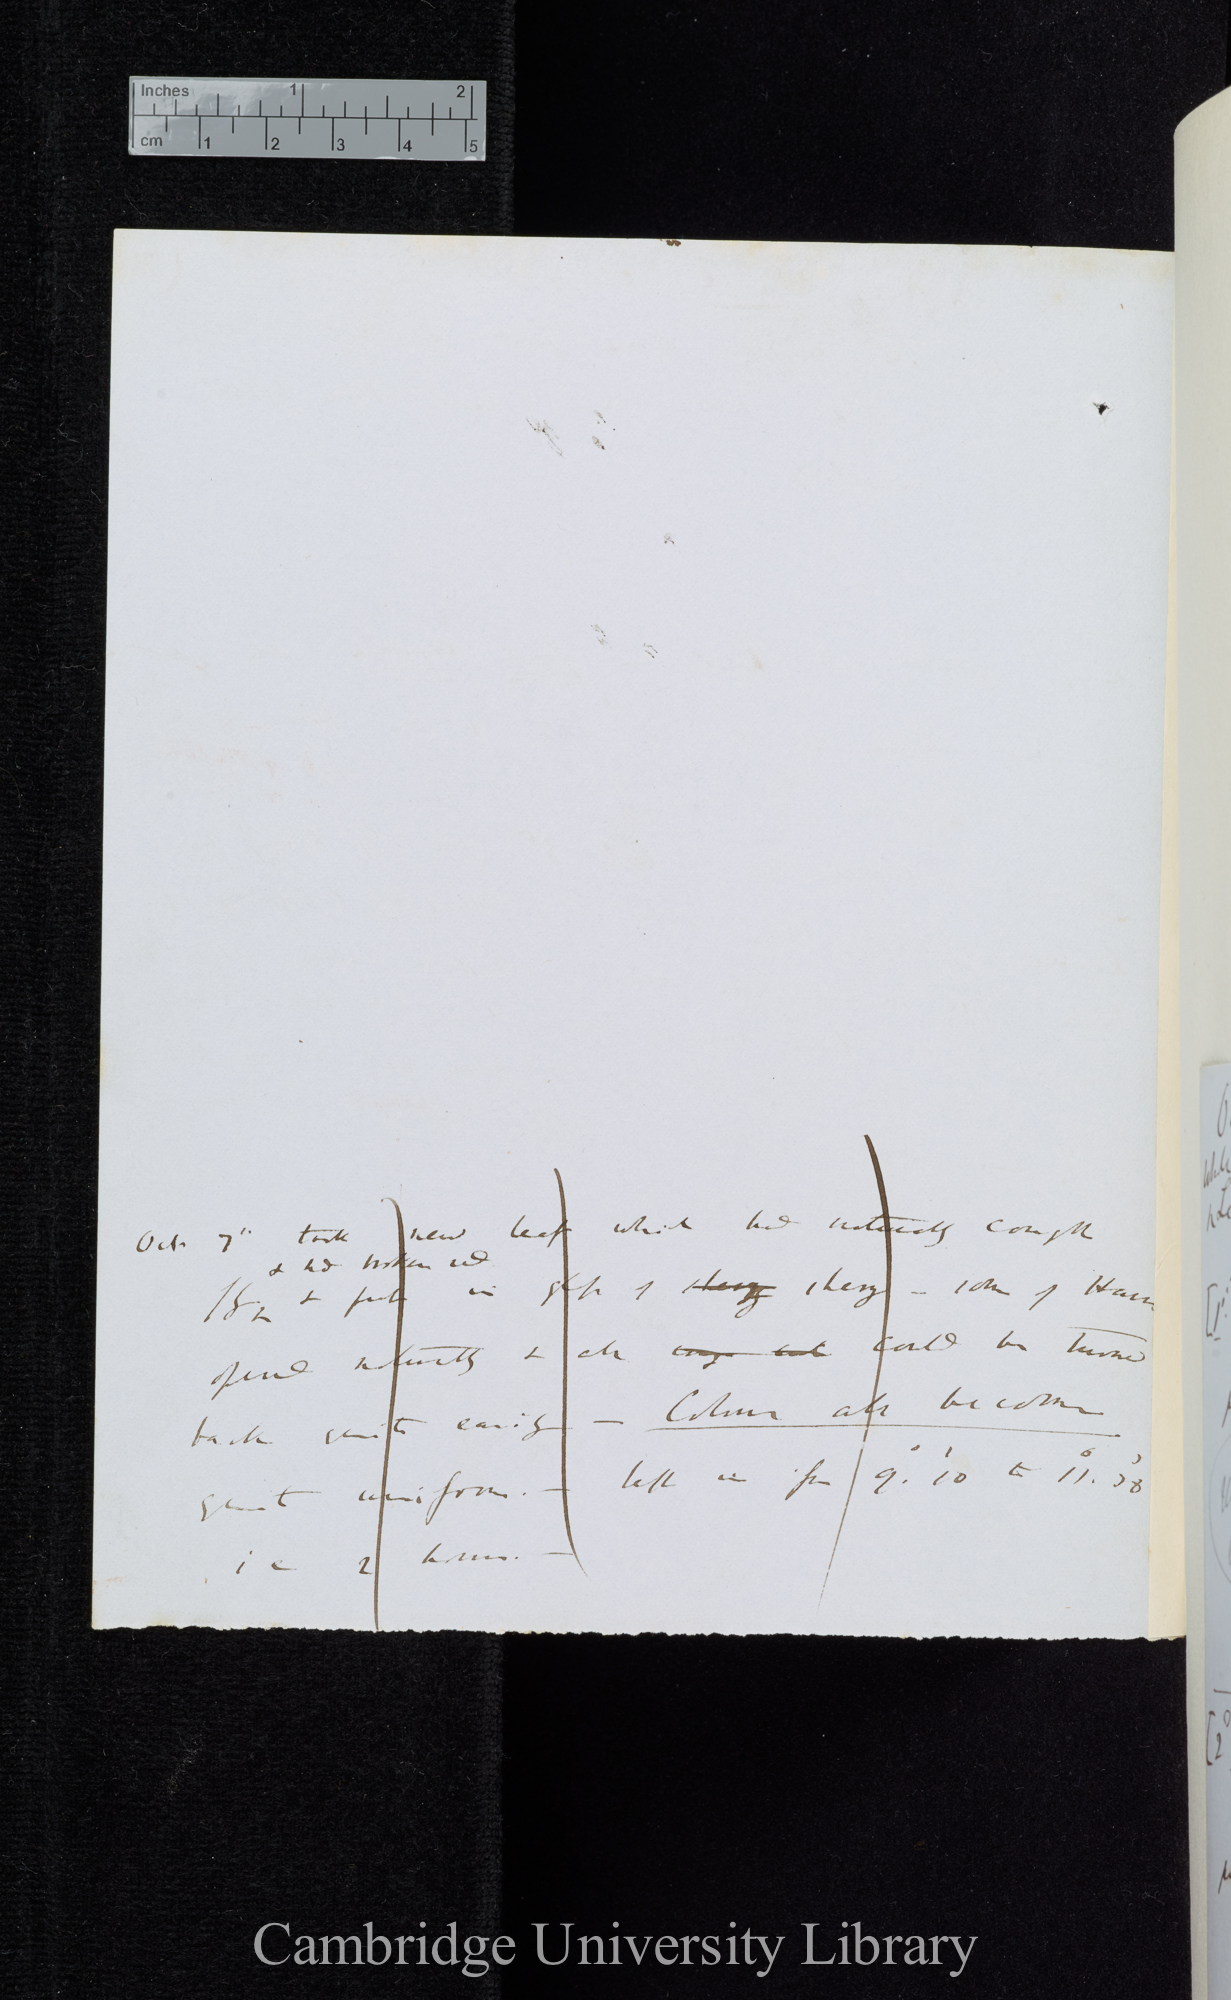 Inches 1 2
cm 1 2 3 4 5
Oct 7th took new leaf which had naturally caught
& had broken
fly & put in glass of sherry sherry – some of Hairs
opened naturally & all could be turned
back quite easily – Colour all become
quite uniform. – left in for 9° 10' to 11° 38'
i e 2 hours. –
Cambridge University Library